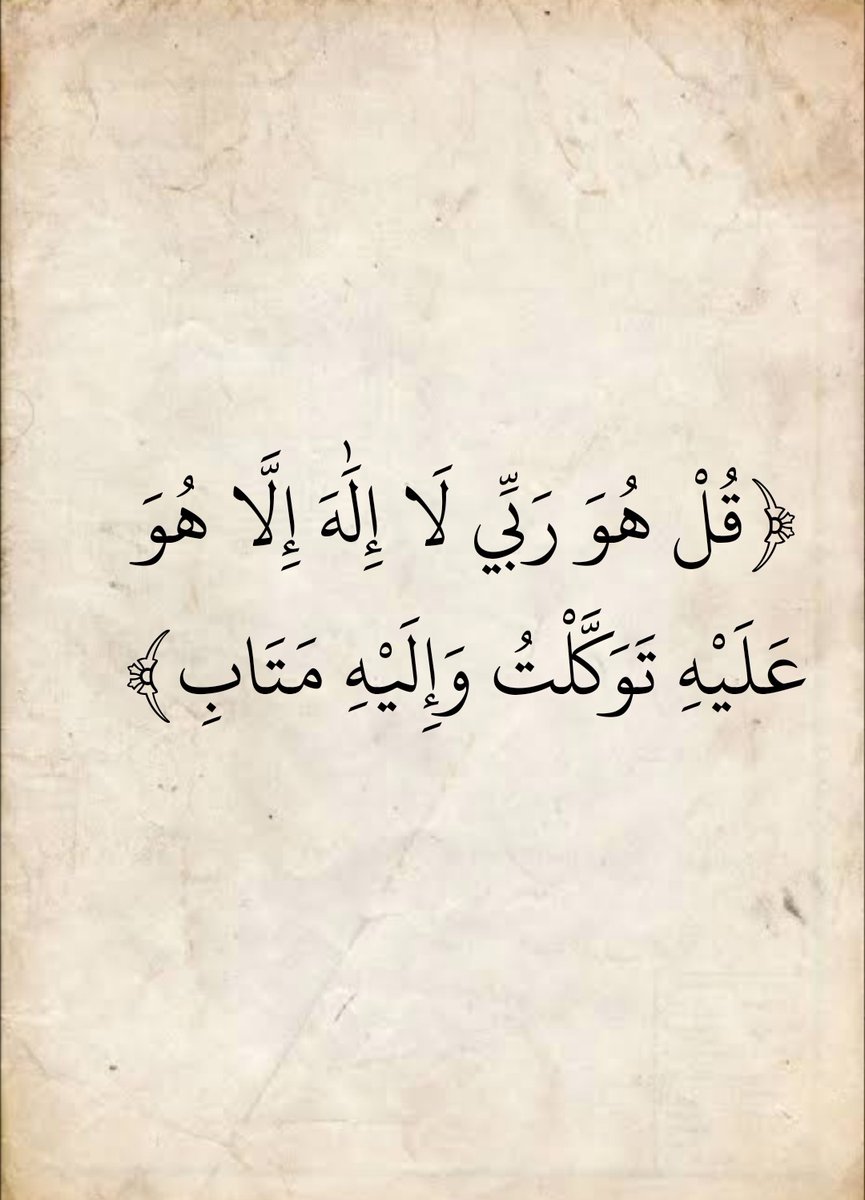 ﴿قُلْ هُوَ رَبِّي لَا إِلَٰهَ إِلَّا هُوَ
عَلَيْهِ تَوَكَّلْتُ وَإِلَيْهِ مَتَابِ﴾